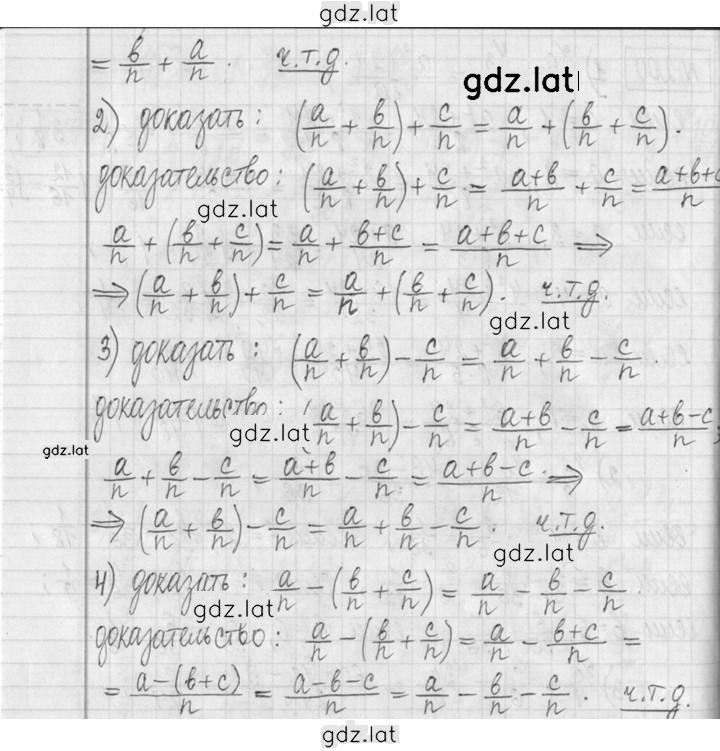 gdz.lat
= в/n + a/n . ч.т.д.
gdz.lat
2) доказать: (a/n + в/n) + c/n = a/n + (в/n + c/n).
доказательство: (a/n + в/n) + c/n = (a+в)/n + c/n = (a+в+c)/n
gdz.lat
a/n + (в/n + c/n) = a/n + (в+c)/n = (a+в+c)/n ⟹
⟹ (a/n + в/n) + c/n = a/n + (в/n + c/n). ч.т.д.
gdz.lat
3) доказать: (a/n + в/n) - c/n = a/n + в/n - c/n
доказательство: (a/n + в/n) - c/n = (a+в)/n - c/n = (a+в-c)/n;
gdz.lat
gdz.lat
a/n + в/n - c/n = (a+в)/n - c/n = (a+в-c)/n ⟹
⟹ (a/n + в/n) - c/n = a/n + в/n - c/n . ч.т.д.
gdz.lat
4) доказать: a/n - (в/n + c/n) = a/n - в/n - c/n
gdz.lat
доказательство: a/n - (в/n + c/n) = a/n - (в+c)/n =
= (a-(в+c))/n = (a-в-c)/n = a/n - в/n - c/n . ч.т.д.
gdz.lat